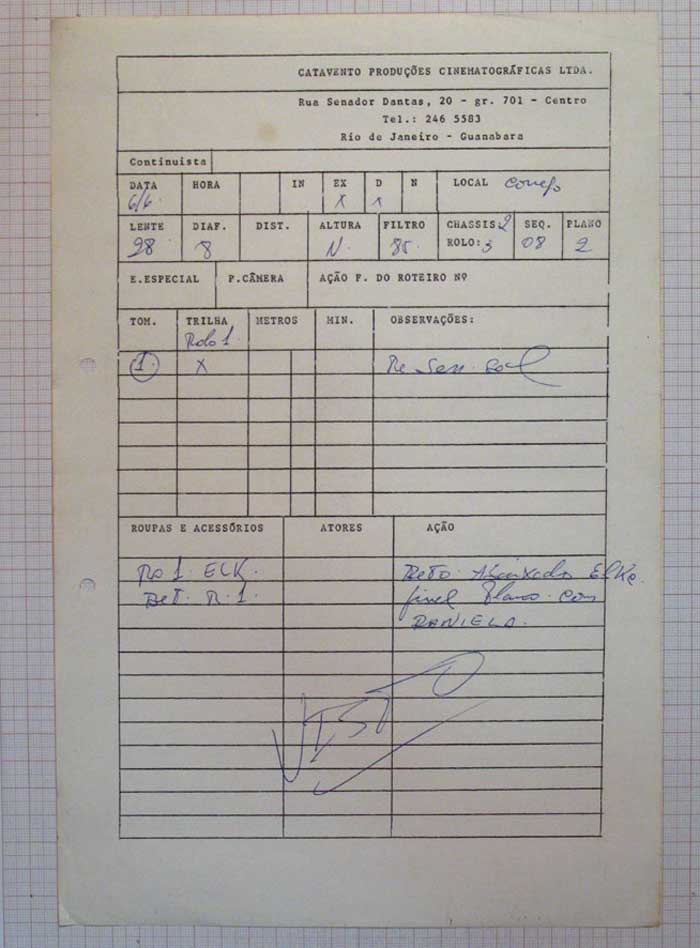 CATAVENTO PRODUÇÕES CINEMATOGRÁFICAS LTDA.
Rua Senador Dantas, 20 - gr. 701 - Centro
Tel.: 246 5583
Rio de Janeiro - Guanabara
Continuista
DATA HORA IN EX D N LOCAL
6/6 X X
LENTE DIAF. DIST. ALTURA FILTRO CHASSIS: 2 SEQ. PLANO
28 8 N. 85. ROLO: 3 08 2
E.ESPECIAL P.CÂMERA AÇÃO F. DO ROTEIRO Nº
TOM. TRILHA METROS MIN. OBSERVAÇÕES:
Rolo 1.
1. X Sem. Sol
ROUPAS E ACESSÓRIOS ATORES AÇÃO
Ro 1. ELK. Elke.
BET. R. 1. Plano. com
DANIELA.
VISTO